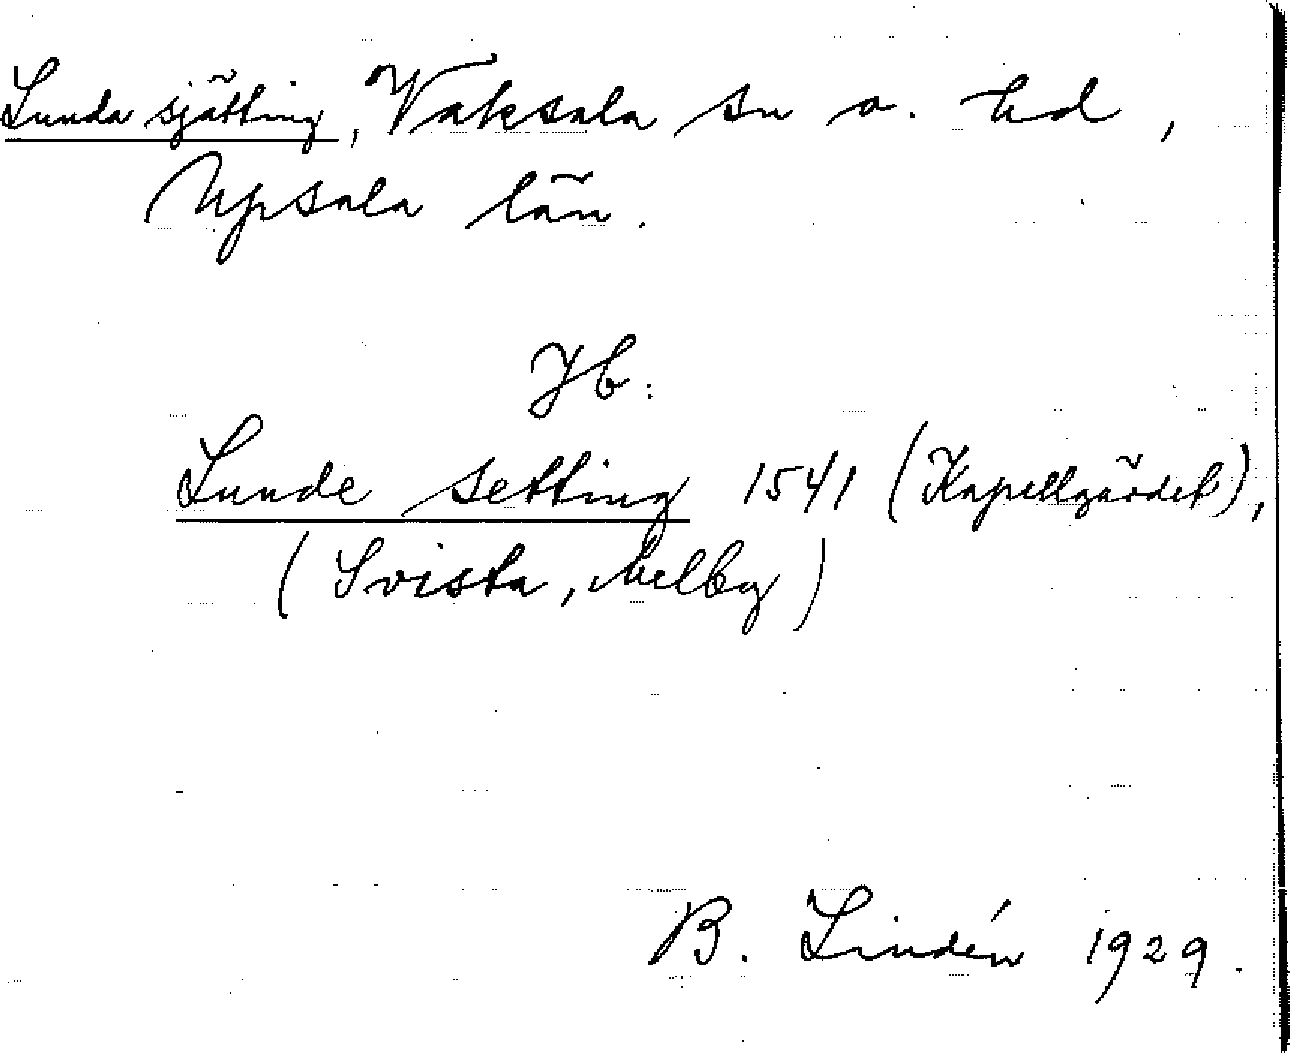 Lunda sjätting, Vaksala sn o. hd,
Upsala län.
Jb:
Lunde setting 1541 (Kapellgärdet),
(Svista, Melby)
B. Lindén 1929.